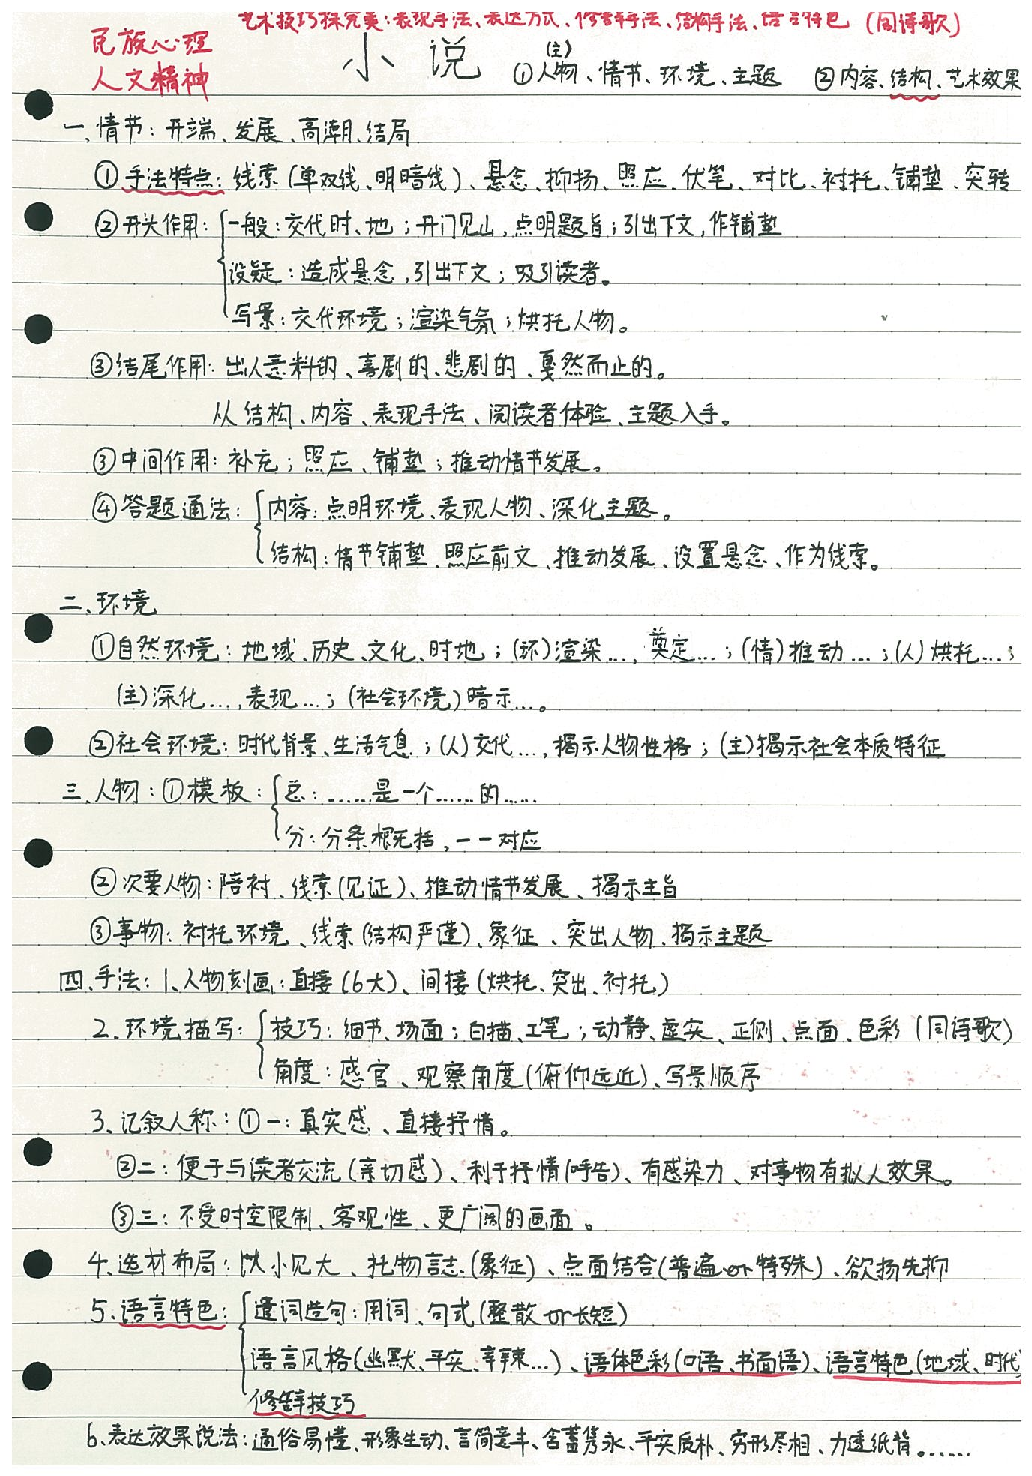 艺术技巧探究类：表现手法、表达方式、修辞手法、结构手法、语言特色（同诗歌）
民族心理
人文精神
小说
(主)
①人物、情节、环境、主题 ②内容、结构、艺术效果
一、情节：开端、发展、高潮、结局
①手法特点：线索(单双线、明暗线)、悬念、抑扬、照应、伏笔、对比、衬托、铺垫、突转
②开头作用：一般：交代时、地；开门见山，点明题旨；引出下文，作铺垫
设疑：造成悬念，引出下文；吸引读者。
写景：交代环境；渲染气氛；烘托人物。
③结尾作用：出人意料的、喜剧的、悲剧的、戛然而止的。
从结构、内容、表现手法、阅读者体验、主题入手。
③中间作用：补充；照应、铺垫；推动情节发展。
④答题通法：内容：点明环境、表现人物、深化主题。
结构：情节铺垫、照应前文、推动发展、设置悬念、作为线索。
二、环境
①自然环境：地域、历史、文化、时地；(环)渲染…，奠定…；(情)推动…；(人)烘托…；
(主)深化…，表现…；(社会环境)暗示…。
②社会环境：时代背景、生活气息；(人)交代…，揭示人物性格；(主)揭示社会本质特征
三、人物：①模板：总：……是一个……的……
分：分条概括，一一对应
②次要人物：陪衬、线索(见证)、推动情节发展、揭示主旨
③事物：衬托环境、线索(结构严谨)、象征、突出人物、揭示主题
四、手法：1、人物刻画：直接(6大)、间接(烘托、突出、衬托)
2、环境描写：技巧：细节、场面；白描、工笔；动静、虚实、正侧、点面、色彩(同诗歌)
角度：感官、观察角度(俯仰远近)、写景顺序
3、记叙人称：①一：真实感、直接抒情。
②二：便于与读者交流(亲切感)、利于抒情(呼告)、有感染力、对事物有拟人效果。
③三：不受时空限制、客观性、更广阔的画面。
4、选材布局：以小见大、托物言志(象征)、点面结合(普遍or特殊)、欲扬先抑
5、语言特色：遣词造句：用词、句式(整散or长短)
语言风格(幽默、平实、辛辣…)、语体色彩(口语、书面语)、语言特色(地域、时代)
修辞技巧
6、表达效果说法：通俗易懂、形象生动、言简意丰、含蓄隽永、平实质朴、穷形尽相、力透纸背。……